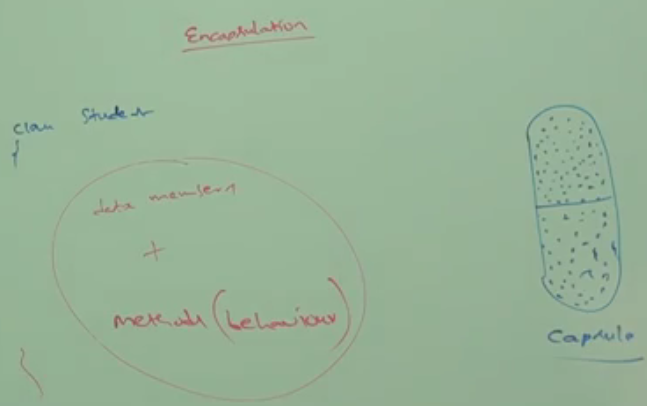 Encapsulation
class Student
{
data members
+
methods (behaviour)
}
Capsule